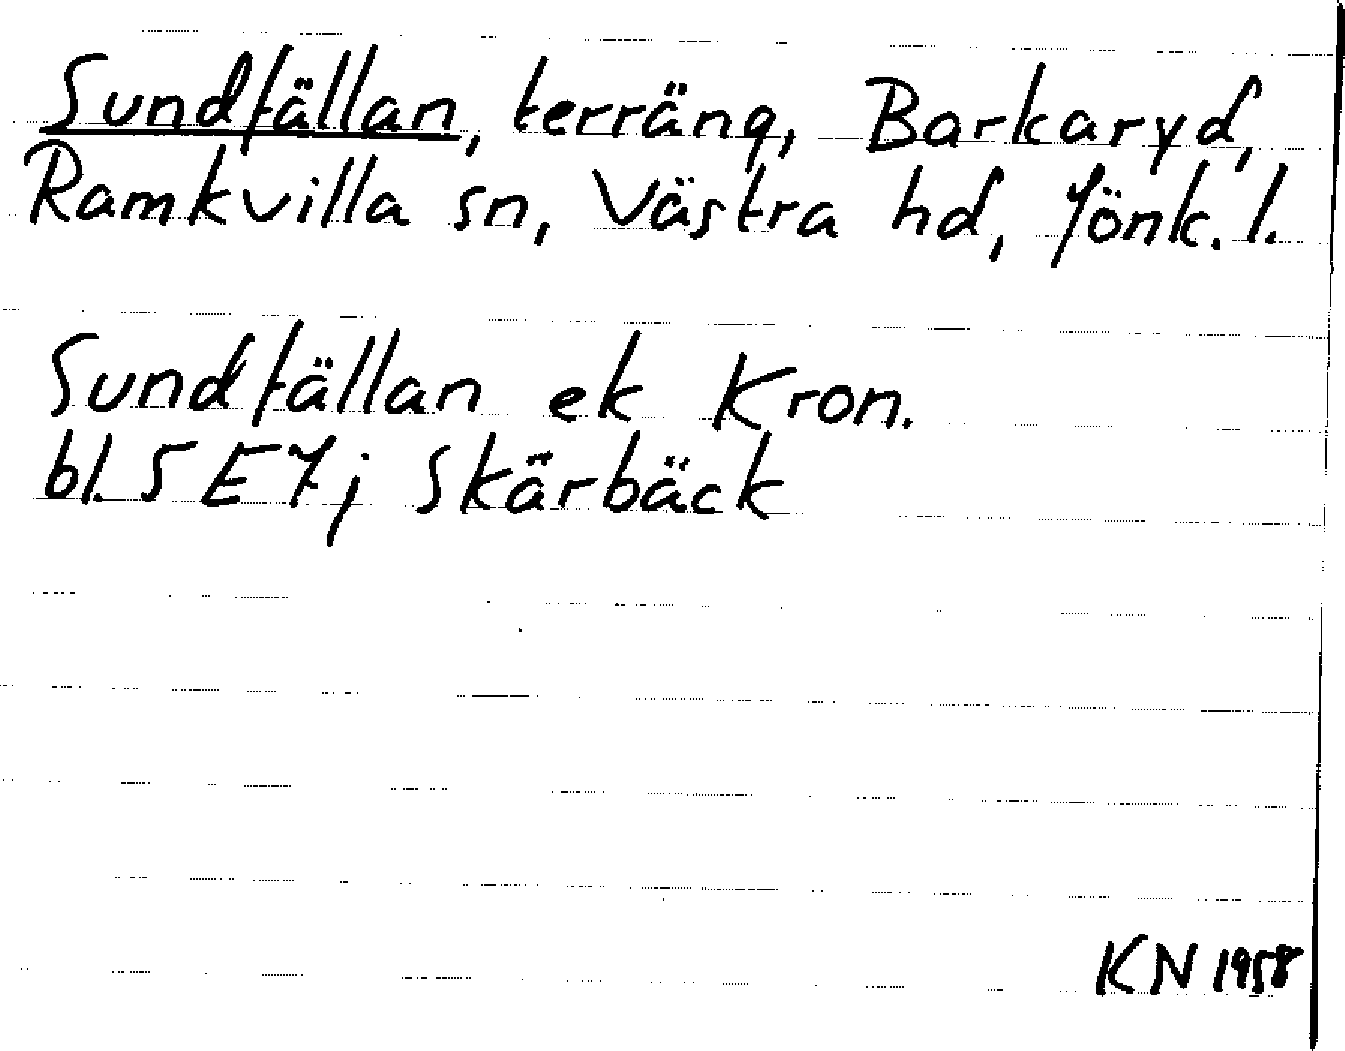 Sundfällan, terräng, Barkaryd,
Ramkvilla sn, Västra hd, Jönk. l.
Sundfällan ek Kron.
bl. 5 E7j Skärbäck
KN 1958